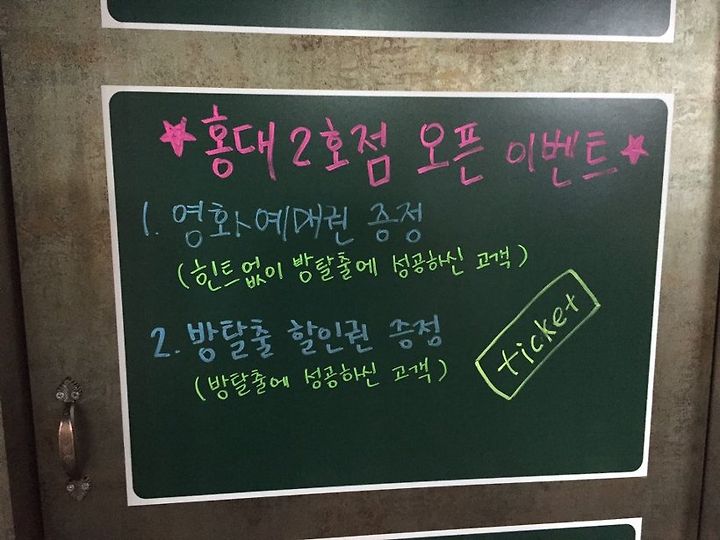 ★홍대 2호점 오픈 이벤트★
1. 영화예매권 증정
(힌트없이 방탈출에 성공하신 고객)
2. 방탈출 할인권 증정
(방탈출에 성공하신 고객)
ticket